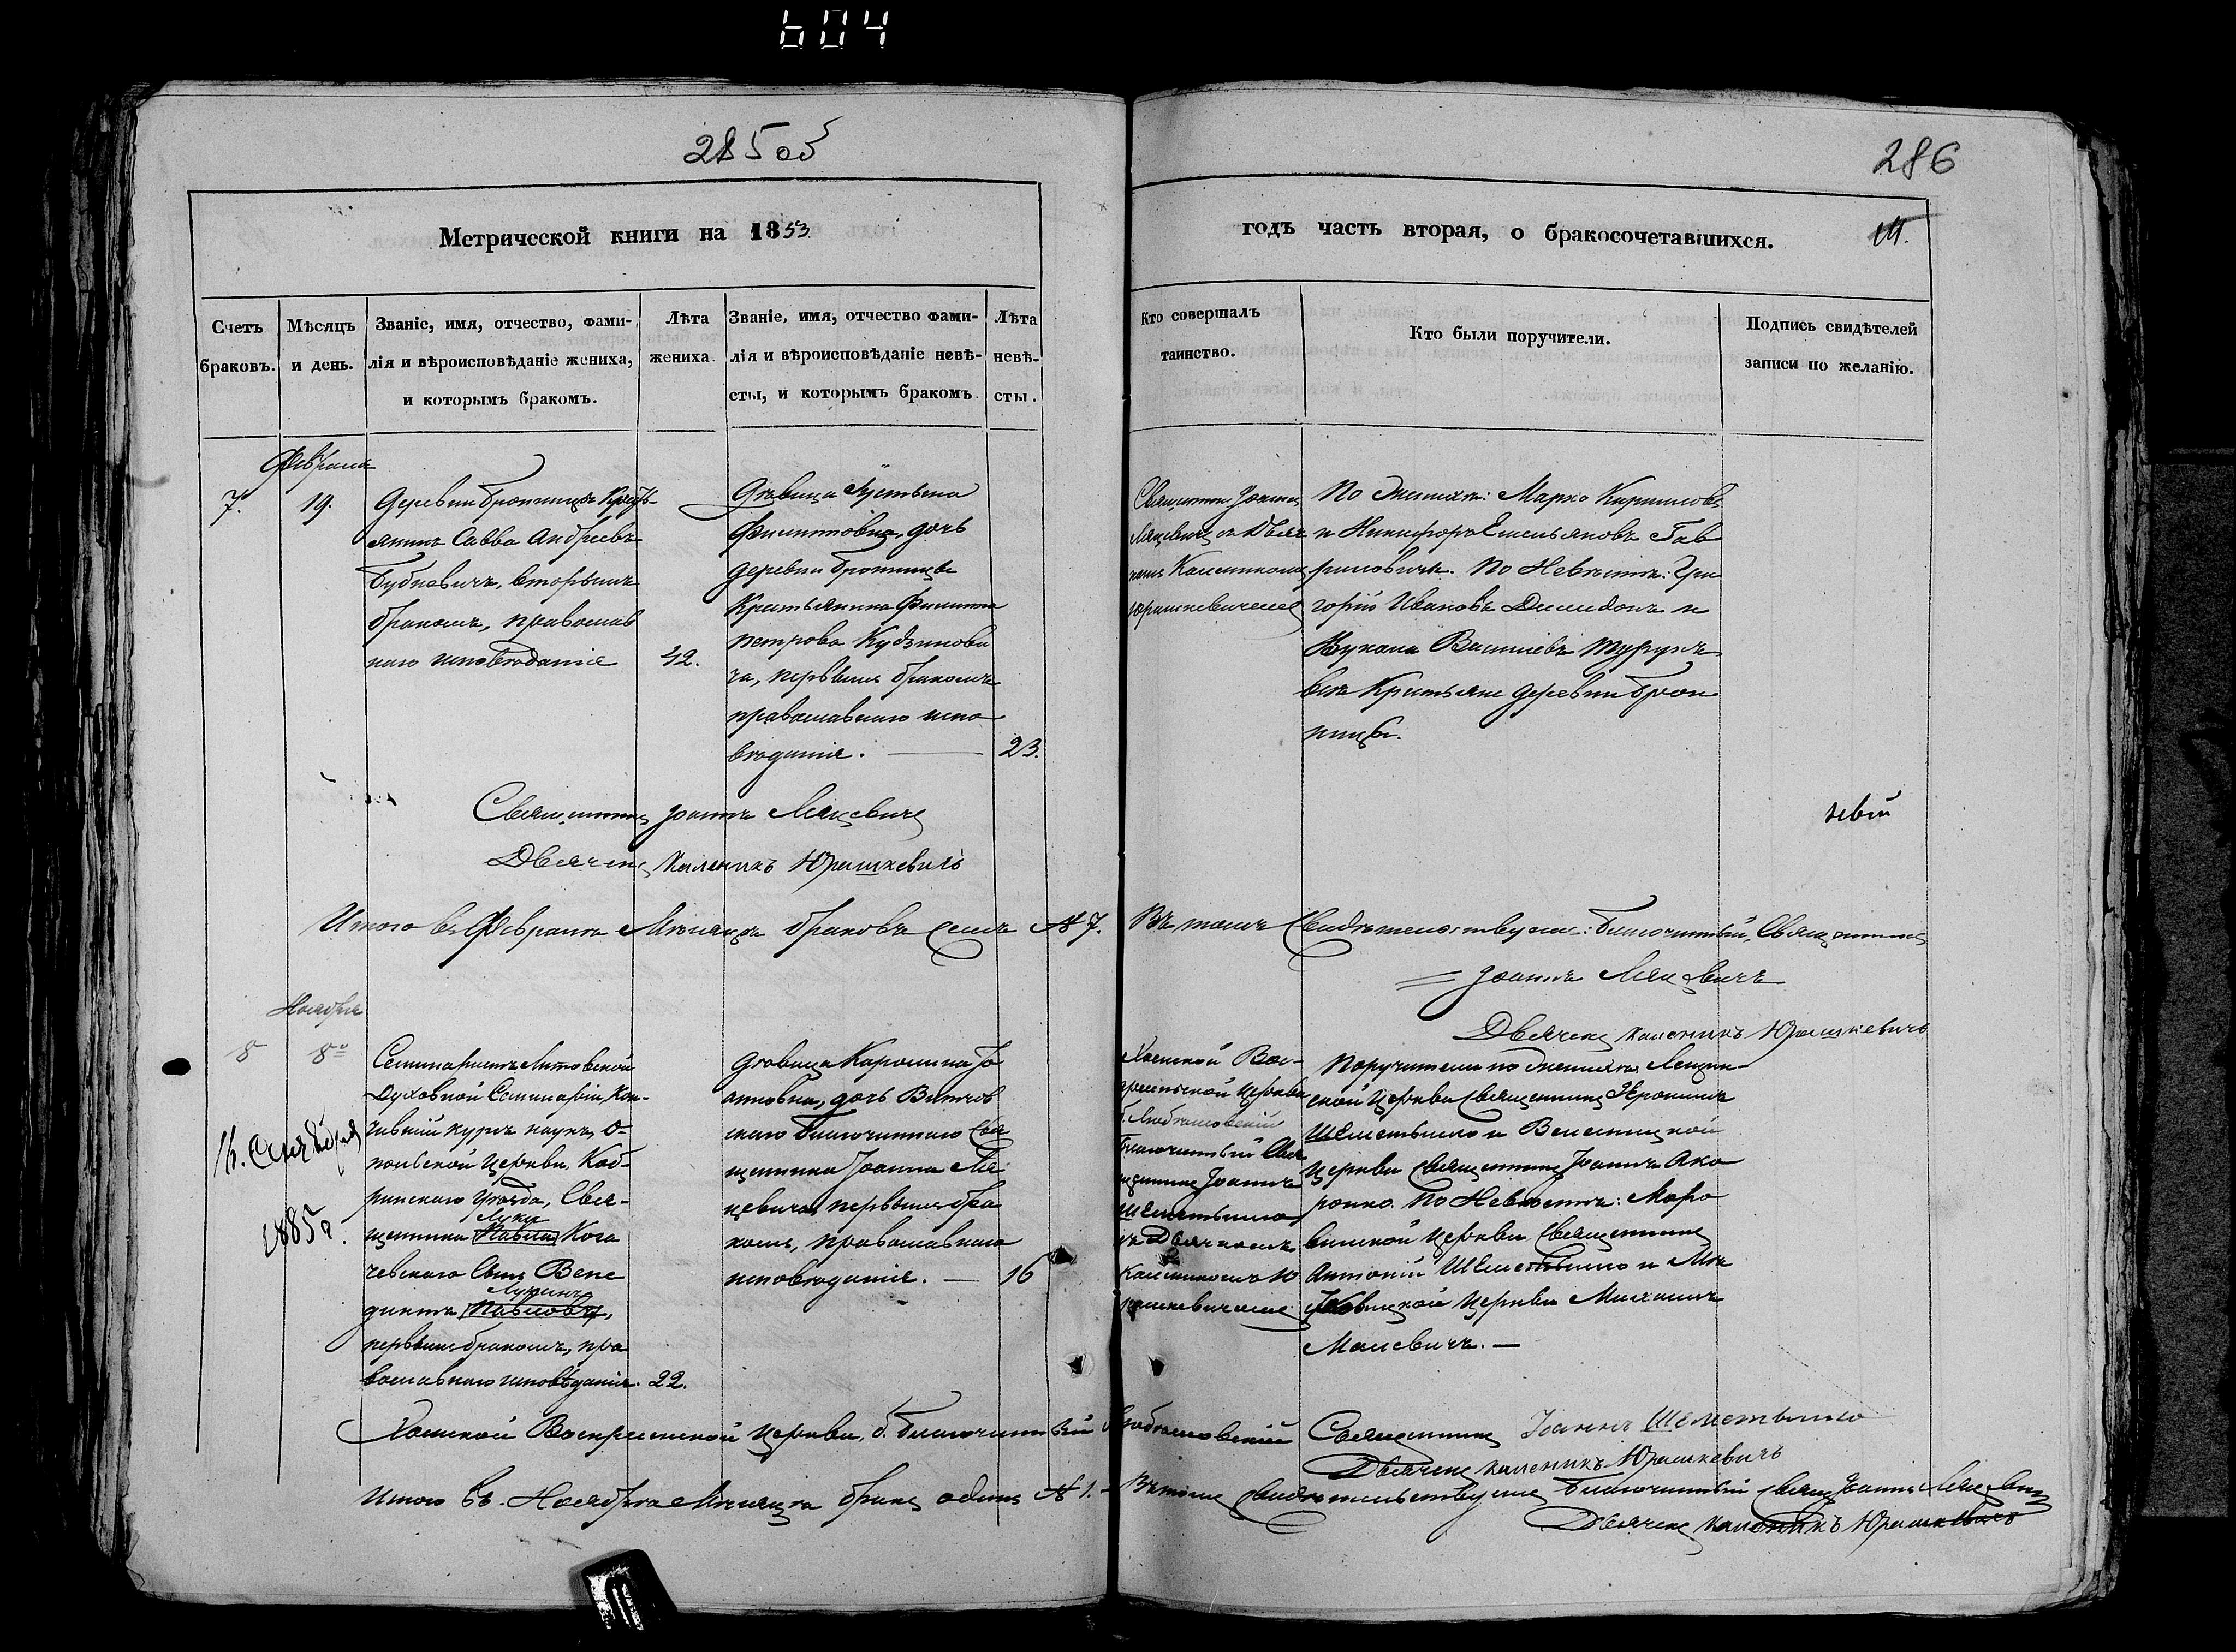 604
285 об
286
Метрической книги на 1853
годъ часть вторая, о бракосочетавшихся.
Счетъ браковъ.
Мѣсяцъ и день.
Званіе, имя, отчество, фами-
лія и вѣроисповѣданіе жениха,
и которымъ бракомъ.
Лѣта жениха.
Званіе, имя, отчество фами-
лія и вѣроисповѣданіе невѣ-
сты, и которымъ бракомъ.
Лѣта невѣ-
сты.
Кто совершалъ
таинство.
Кто были поручители.
Подпись свидѣтелей
записи по желанію.
Февраля
7. 19.
Деревни Бронницъ Кресть
янинъ Савва Андреевъ
вторымъ
бракомъ, православ
наго исповѣданія 42.
Дѣвица Устинья
Филиповна, дочь
деревни Бронницъ
Крестьянина Филиппа
Петрова Кудзинови
ча, первымъ бракомъ
православнаго испо
вѣданія. — 23.
Священникъ Іоаннъ
Ляцевичъ съ Дьяч
комъ Калиникомъ
Юрашкевичемъ
По Женихѣ: Марко Кириловъ
и Никифоръ Емельяновъ Гав
риловичи. По Невѣстѣ: Гри
горій Ивановъ и
Василіевъ
Крестьяне деревни Брон
ницъ.
Священникъ Іоаннъ Ляцевичъ
Дьячекъ Калиникъ Юрашкевичъ
Итого въ Февралѣ Мѣсяцѣ браковъ семь № 7.
Въ томъ Свидѣтельствуемъ: Благочинный, Священникъ
Іоаннъ Ляцевичъ
Дьячекъ Калиникъ Юрашкевичъ
Ноября
8 8го
Семинаристъ Литовской
Духовной Семинаріи, Кон-
чивший курсъ наукъ, О-
польской Церкви, Коб-
ринскаго уѣзда, Свя-
Луки
щенника Павла Кога
чевскаго Сынъ Бене
Лукинъ
диктъ Павловъ,
первымъ бракомъ, пра
вославнаго исповѣданія. 22.
1885 г.
Дѣвица Каролина Іо
анновна, дочь
скаго Благочиннаго Свя
щенника Іоанна Ля
цевича, первымъ бра
комъ, православнаго
исповѣданія. — 16
Хомской Вос-
кресенской Церкви
б. Любашовскій
Благочинный Свя
щенникъ Іоаннъ
Шеметылло
съ Дьячкомъ
Калиникомъ Ю
рашкевичемъ
Поручители по Женихѣ:
ской Церкви Священникъ
Шеметылло и
Церкви Священникъ Іоаннъ
По Невѣстѣ:
Церкви Священникъ
Антоній Шеметылло и
Церкви
Малевичъ. —
Хомской Воскресенской Церкви, б. Благочинный Любашовскій Священникъ Іоаннъ Шеметылло
Дьячекъ Калиникъ Юрашкевичъ
Итого въ Ноябрѣ Мѣсяцѣ бракъ одинъ № 1. —
Въ томъ свидѣтельствуемъ Благочинный Свящ. Іоаннъ Ляцевичъ
Дьячекъ Калиникъ Юрашкевичъ